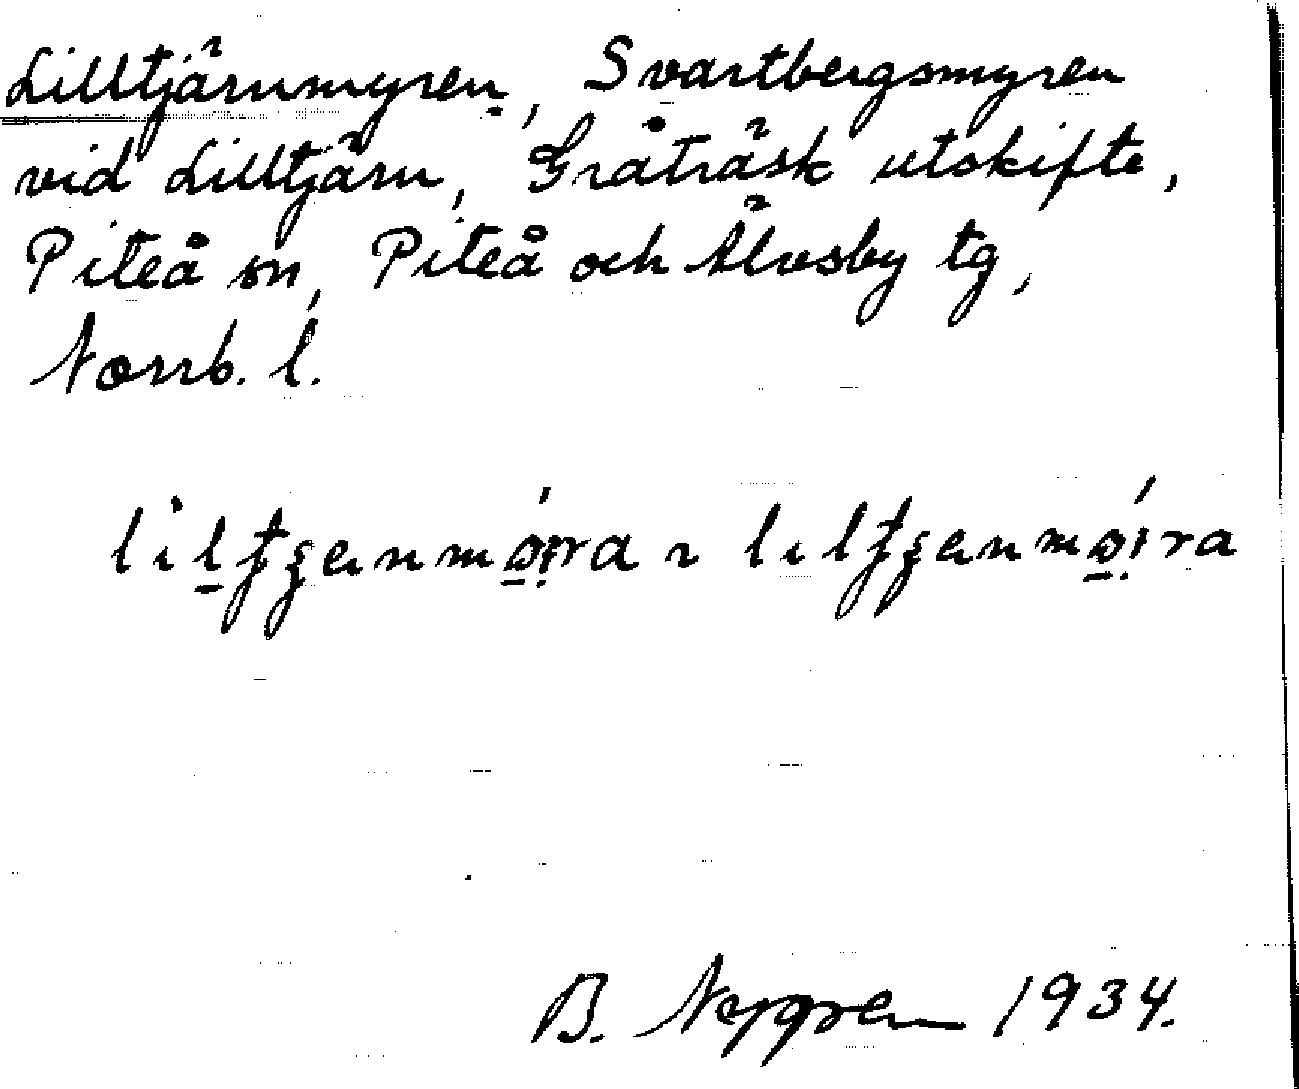 Lilltjärnmyren, Svartbergsmyren
vid Lilltjärn, Gråträsk utskifte,
Piteå sn, Piteå och Älvsby tg,
Norrb. l.
B. Nygren 1934.